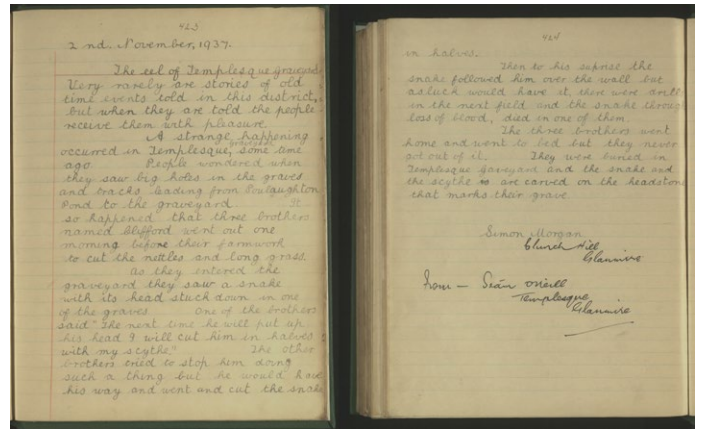 423
2nd. November, 1937.
The eel of Templesque graveyard
Very rarely are stories of old
time events told in this district,
but when they are told the people
receive them with pleasure.
A strange happening
occurred in Templesque, graveyard some time
ago. People wondered when
they saw big holes in the graves
and tracks leading from Poulaughton
Pond to the graveyard. It
so happened that three brothers
named Clifford went out one
morning before their farmwork
to cut the nettles and long grass.
As they entered the
graveyard they saw a snake
with its head stuck down in one
of the graves. One of the brothers
said "The next time he will put up
his head I will cut him in halves
with my scythe." The other
brothers tried to stop him doing
such a thing but he would have
his way and went and cut the snake
424
in halves.
Then to his suprise the
snake followed him over the wall but
as luck would have it, there were drills
in the next field and the snake through
loss of blood, died in one of them.
The three brothers went
home and went to bed but they never
got out of it. They were buried in
Templesque Gaveyard and the snake and
the scythe are carved on the headstone
that marks their grave.
Simon Morgan
Church Hill
Glanmire
from — Seán O'Neill
Templesque
Glanmire